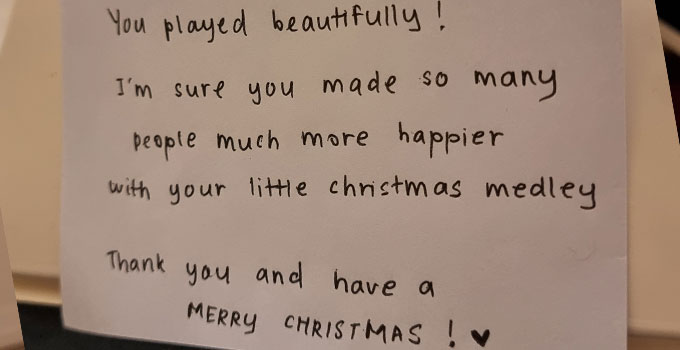 You played beautifully!
I'm sure you made so many
people much more happier
with your little christmas medley
Thank you and have a
MERRY CHRISTMAS! ♥